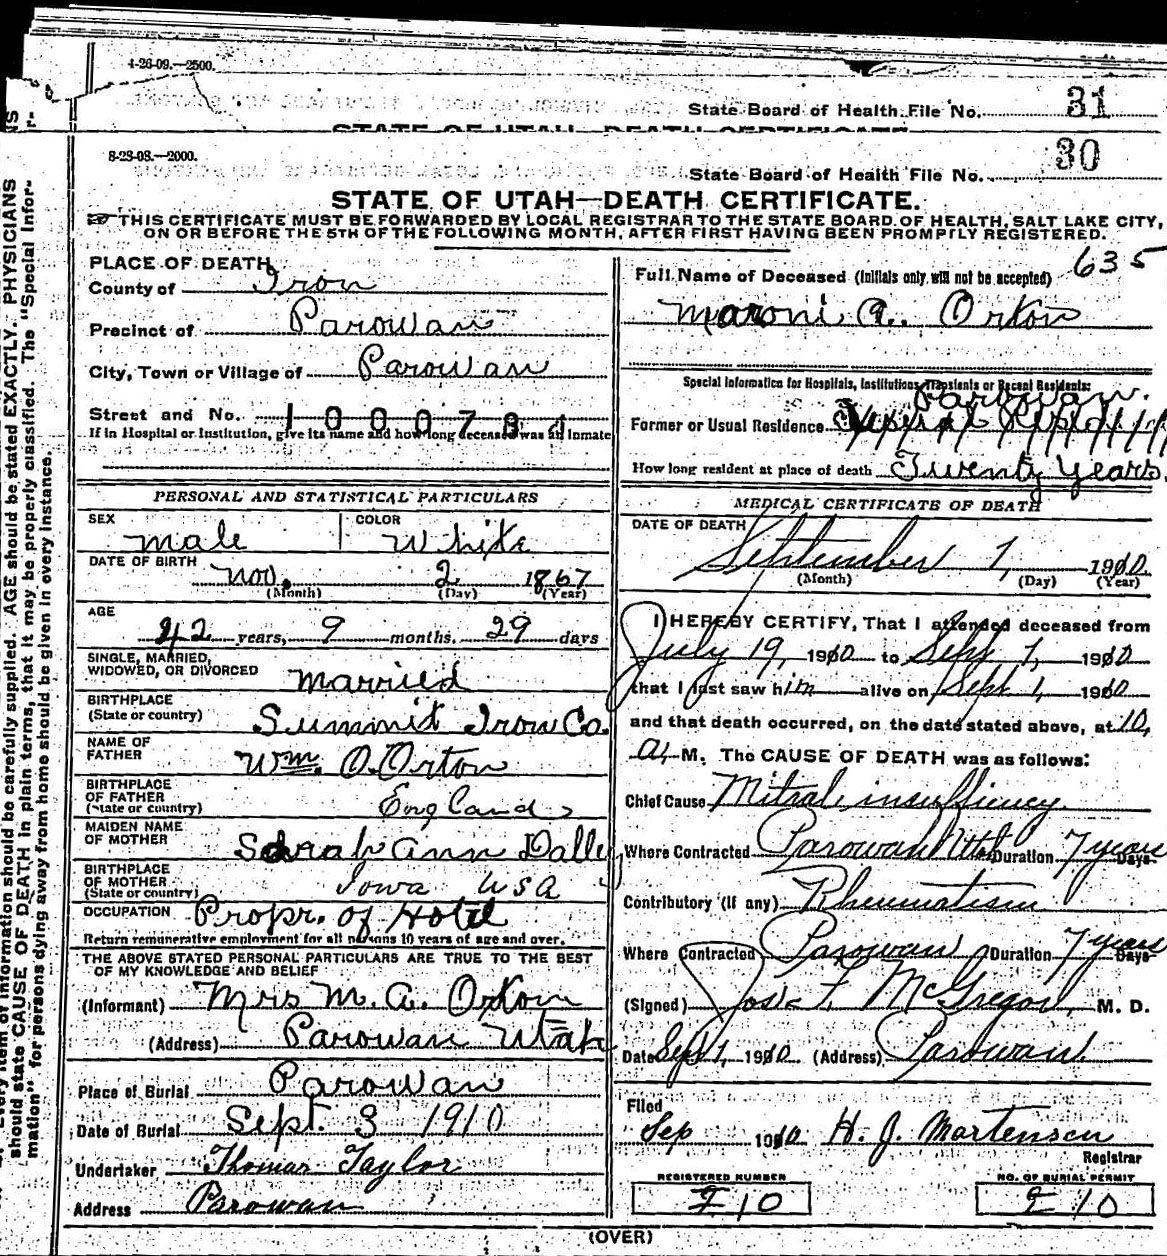 4-26-09.—2500.
State Board of Health File No. 31
STATE OF UTAH—DEATH CERTIFICATE
8-23-08.—2000.
30
State Board of Health File No.
STATE OF UTAH—DEATH CERTIFICATE.
THIS CERTIFICATE MUST BE FORWARDED BY LOCAL REGISTRAR TO THE STATE BOARD OF HEALTH, SALT LAKE CITY,
ON OR BEFORE THE 5TH OF THE FOLLOWING MONTH, AFTER FIRST HAVING BEEN PROMPTLY REGISTERED.
PLACE OF DEATH
County of Iron
Precinct of Parowan
City, Town or Village of Parowan
Street and No. 1000784
If in Hospital or Institution, give its name and how long deceased was an inmate
PERSONAL AND STATISTICAL PARTICULARS
SEX male COLOR White
DATE OF BIRTH nov. 2 1867
(Month) (Day) (Year)
AGE 42 years, 9 months, 29 days
SINGLE, MARRIED,
WIDOWED, OR DIVORCED married
BIRTHPLACE
(State or country) Summit Iron Co.
NAME OF
FATHER Wm. O. Orton
BIRTHPLACE
OF FATHER
(State or country) England
MAIDEN NAME
OF MOTHER Sarah Ann Dalley
BIRTHPLACE
OF MOTHER
(State or country) Iowa USA
OCCUPATION Propr. of Hotel
Return remunerative employment for all persons 10 years of age and over.
THE ABOVE STATED PERSONAL PARTICULARS ARE TRUE TO THE BEST
OF MY KNOWLEDGE AND BELIEF
(Informant) Mrs M. A. Orton
(Address) Parowan Utah
Place of Burial Parowan
Date of Burial Sept. 3 1910
Undertaker Thomas Taylor
Address Parowan
635
Full Name of Deceased (Initials only will not be accepted)
Maroni A. Orton
Special Information for Hospitals, Institutions, Transients or Recent Residents:
Parowan.
Former or Usual Residence
How long resident at place of death Twenty Years.
MEDICAL CERTIFICATE OF DEATH
DATE OF DEATH
September 1, 1910
(Month) (Day) (Year)
I HEREBY CERTIFY, That I attended deceased from
July 19, 1910 to Sept 1, 1910
that I last saw him alive on Sept 1, 1910
and that death occurred, on the date stated above, at 10,
A. M. The CAUSE OF DEATH was as follows:
Chief Cause Mitral insufficiency.
Where Contracted Parowan Utah Duration 7 years Days
Contributory (If any) Rheumatism
Where Contracted Parowan Duration 7 years Days
(Signed) Jos. F. McGregor, M. D.
Date Sept 1, 1910 (Address) Parowan.
Filed
Sep 1910 H. J. Mortensen
Registrar
REGISTERED NUMBER
10
NO. OF BURIAL PERMIT
10
(OVER)
Every item of information should be carefully supplied. AGE should be stated EXACTLY. PHYSICIANS
should state CAUSE OF DEATH in plain terms, that it may be properly classified. The "Special Infor-
mation" for persons dying away from home should be given in every instance.